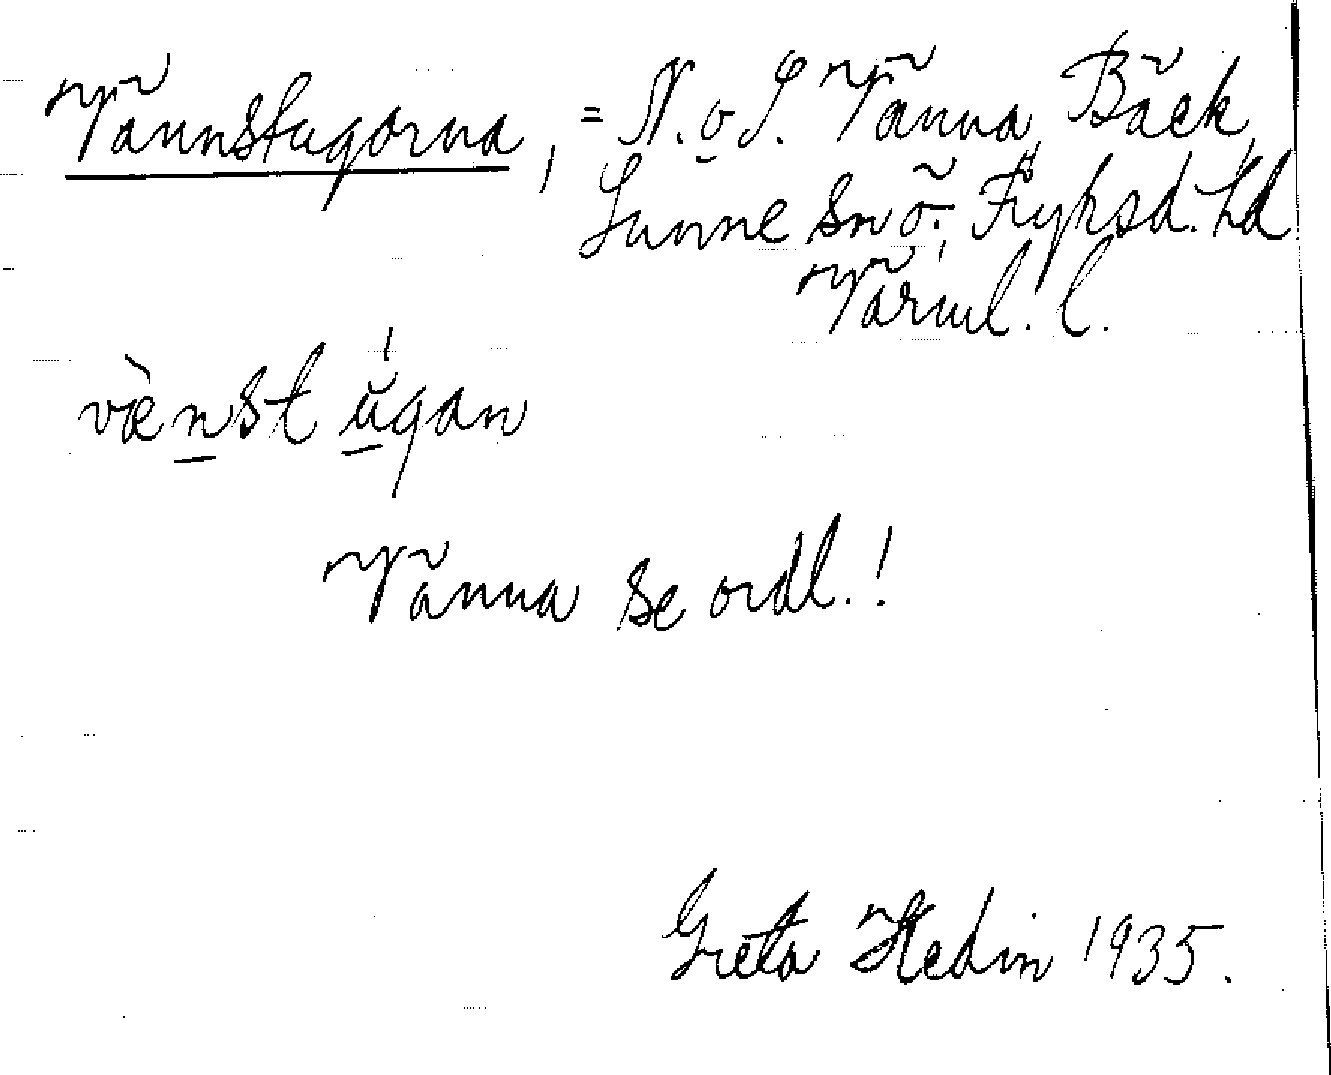 Vännstugorna, = N. o S. Vänna, Bäck,
Sunne sn ö. Fryksd. hd
Värml. l.
vènst ŭgan
Vänna se ordl.!
Greta Hedin 1935.